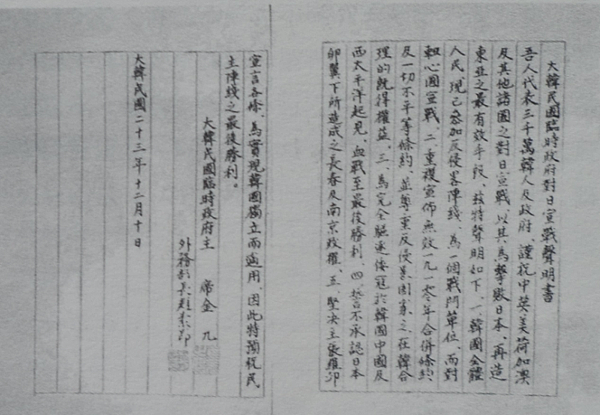 大韓民國臨時政府對日宣戰聲明書
吾人代表三千萬韓人及政府、謹祝中英美荷加澳
及其他諸國之對日宣戰、以其為擊敗日本、再造
東亞之最有效手段、玆特聲明如下、一、韓國全體
人民、現已參加反侵畧陣綫、為一個戰鬥單位、而對
軸心國宣戰、二、重複宣佈無效一九一零年合併條約
及一切不平等條約、並尊重反侵畧國家之在韓合
理的既得權益、三、為完全驅逐倭寇於韓國中國及
西太平洋起見、血戰至最後勝利、四、誓不承認日本
卵翼下所造成之長春及南京政權、五、堅决主張羅邱
宣言各條、為實現韓國獨立而適用、因此特預祝民
主陣綫之最後勝利。
大韓民國臨時政府主 席金 九
外務部長趙素昂
大韓民國二十三年十二月十日